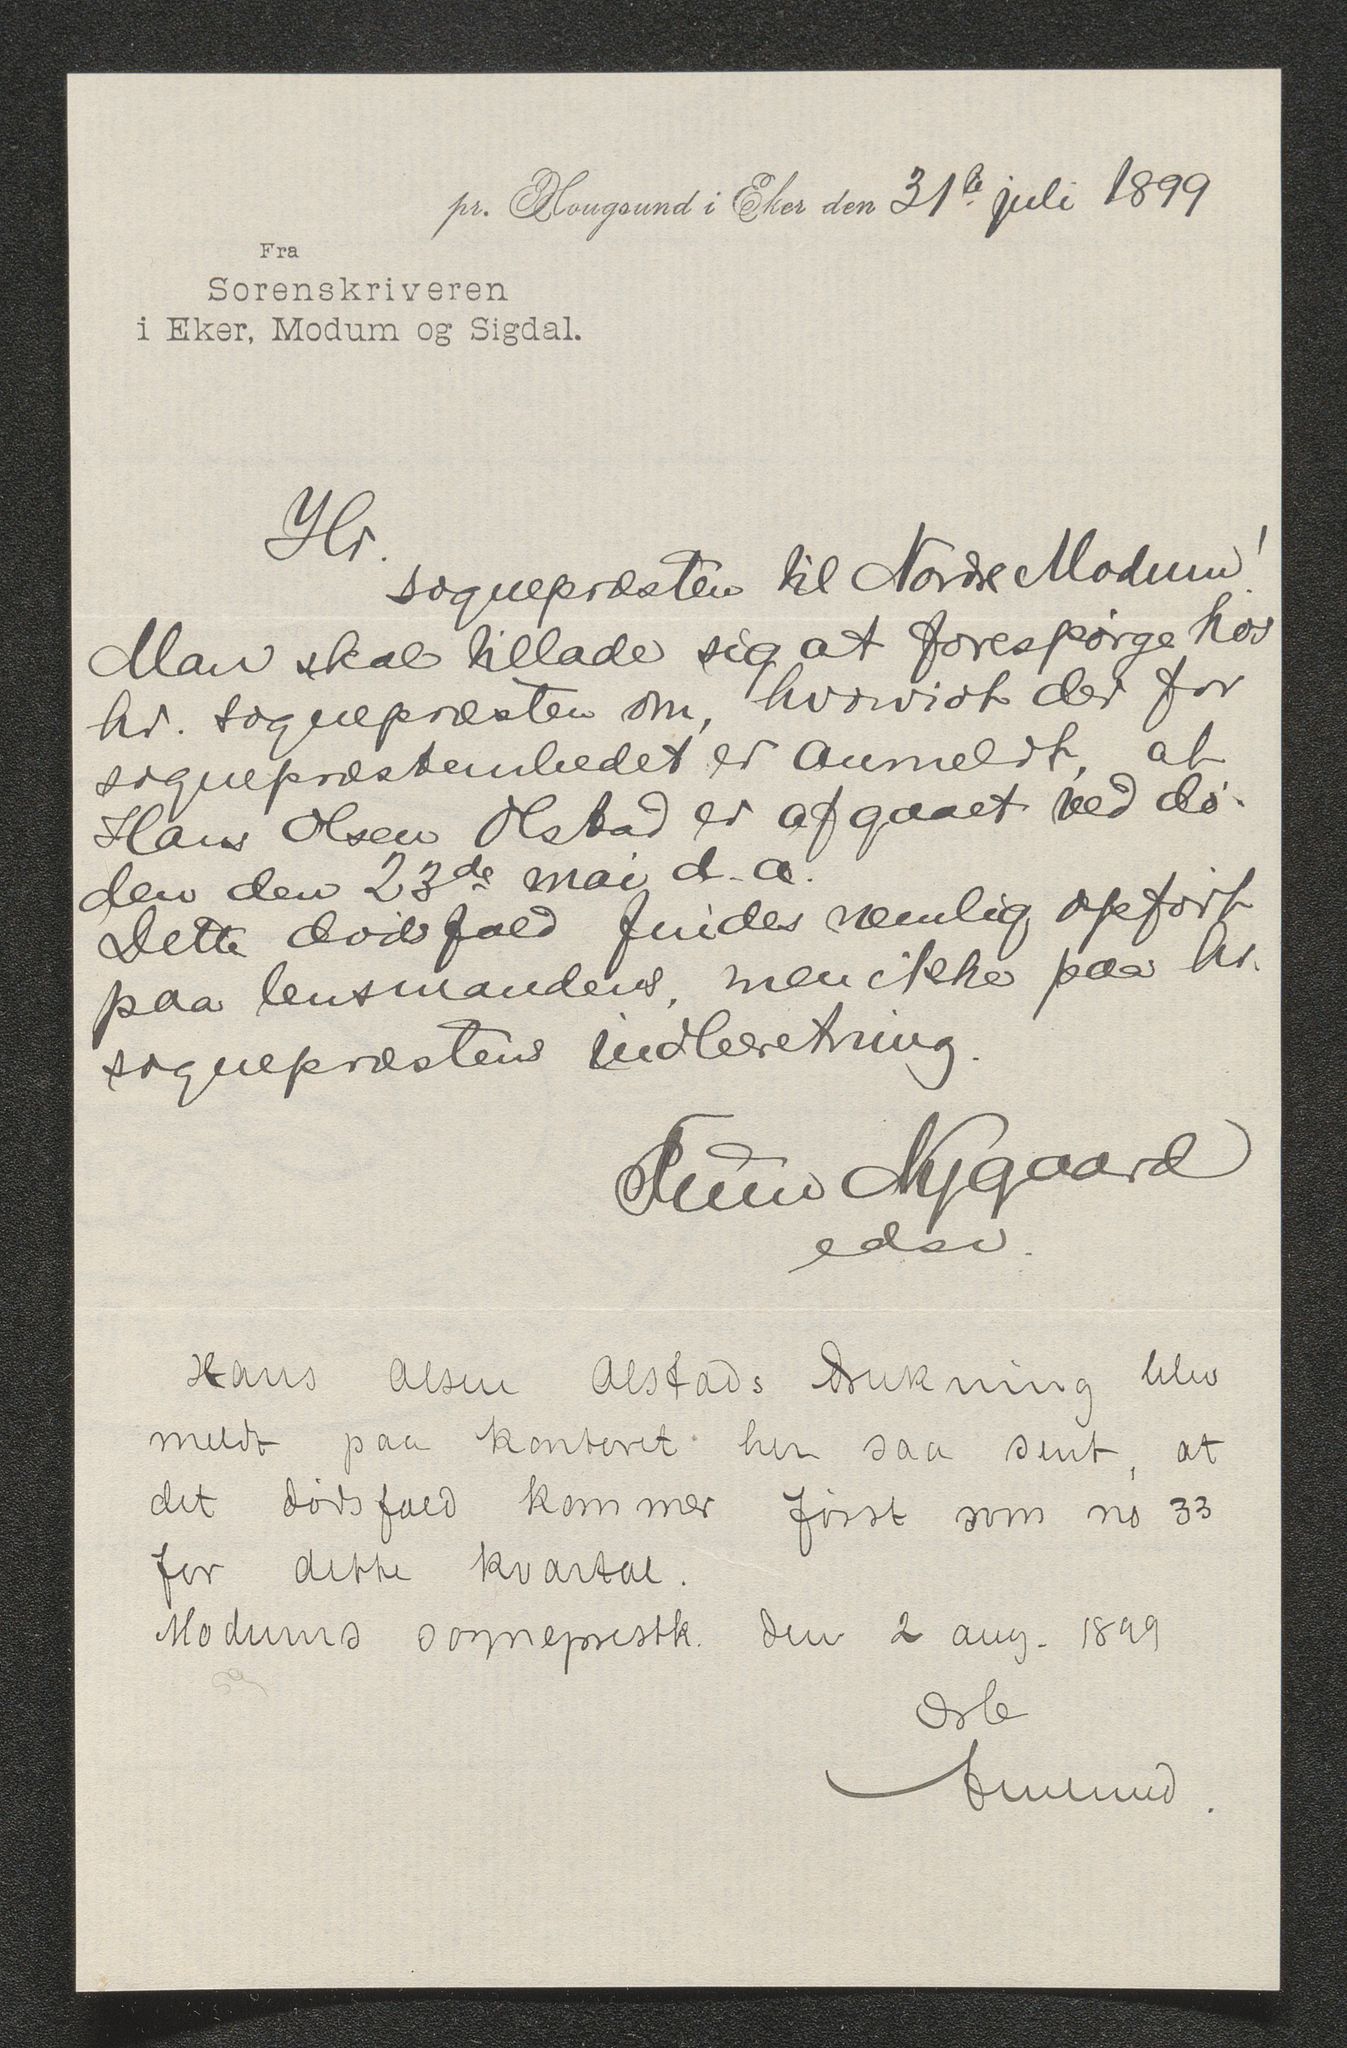 pr. Hougsund i Eker den 31te juli 1899
Fra
Sorenskriveren
i Eker, Modum og Sigdal.
Hr.
sognepræsten til Nordre Modum!
Man skal tillade sig at forespørge hos
hr. sognepræsten om, hvorvidt der for
sognepræstembedet er anmeldt, at
Hans Olsen Olstad er afgaaet ved dø-
den den 23de mai d. a.
Dette dødsfald findes nemlig opført
paa lensmandens, men ikke paa hr.
sognepræstens indberetning.
Nygaard
edsv.
Hans Olsen Olstads drukning blev
meldt paa kontoret her saa sent, at
det dødsfald kommer først som no 33
for dette kvartal.
Modums sogneprestk. den 2 aug. 1899
Ærb